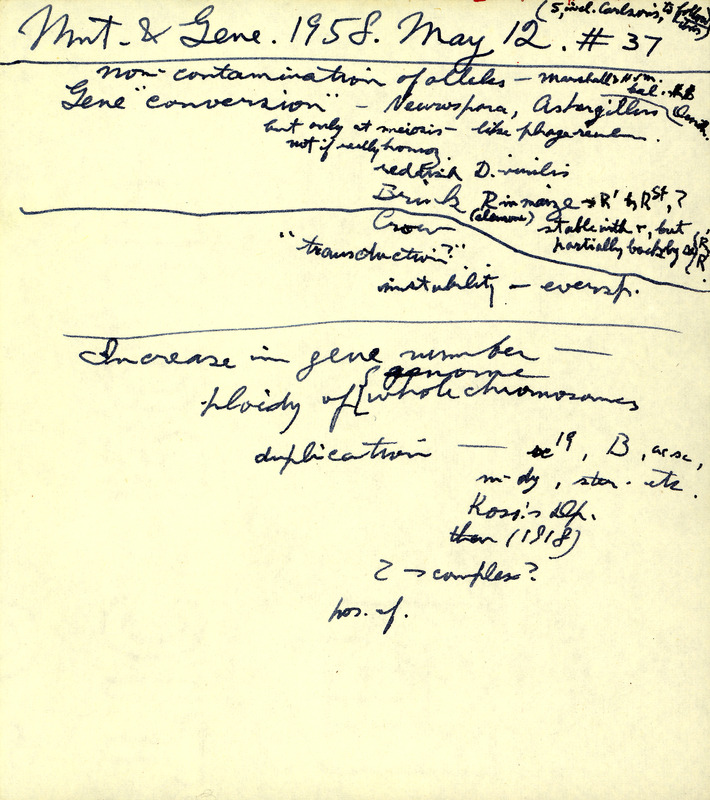 (5, incl. Carlson's, to follow this)
Mut. & Gene. 1958. May 12. # 37
non-contamination of alleles — Marshall's
bal.
Gene "conversion" — Neurospora, Aspergillus
but only at meiosis — like phage recom.
not if really homoz
reddish D. virilis
Brink R in maize → R' by R^St, ?
Crow
stable with r, but
partially back by
"transduction?"
instability — eversp.
Increase in gene number —
genome
ploidy of { whole chromosomes
duplication — sc^19, B, ac sc,
m-dy, ster. etc.
Rossi's Dp.
then (1918)
2 → complex?
pos. ef.